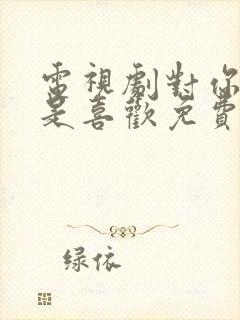 電視劇對你
是喜歡免費
绿依